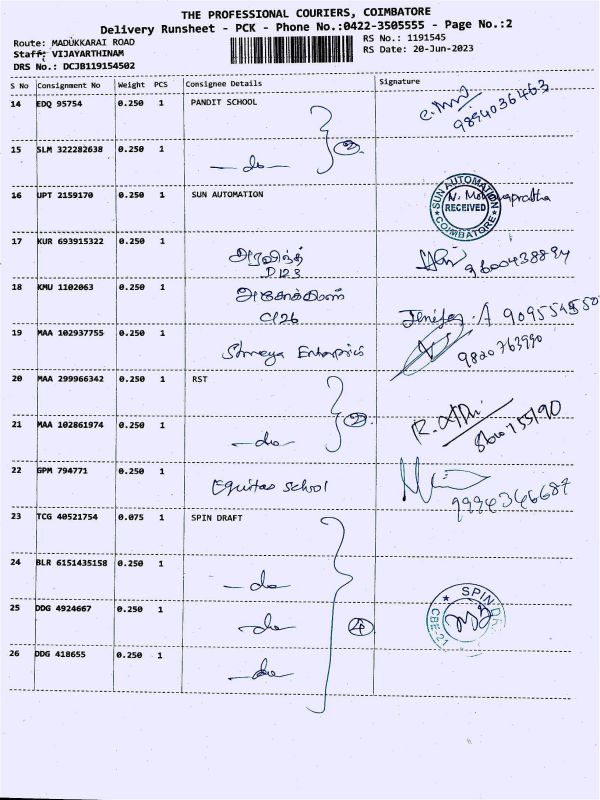 THE PROFESSIONAL COURIERS, COIMBATORE
Delivery Runsheet - PCK - Phone No.:0422-3505555 - Page No.:2
Route: MADUKKARAI ROAD
RS No.: 1191545
Staff: VIJAYARTHINAM
RS Date: 20-Jun-2023
DRS No.: DCJB119154502
S No Consignment No Weight PCS Consignee Details Signature
14 EDQ 95754 0.250 1 PANDIT SCHOOL
9894036463
15 SLM 322282638 0.250 1 —do— 2
16 UPT 2159170 0.250 1 SUN AUTOMATION
SUN AUTOMATION RECEIVED COIMBATORE
17 KUR 693915322 0.250 1 அரவிந்த்
D123
9600438894
18 KMU 1102063 0.250 1
C126
9095545500
19 MAA 102937755 0.250 1 Shreya Enterprics
9820763990
20 MAA 299966342 0.250 1 RST
21 MAA 102861974 0.250 1 —do— 2
22 GPM 794771 0.250 1 Equitas School
9994346687
23 TCG 40521754 0.075 1 SPIN DRAFT
24 BLR 6151435158 0.250 1 —do—
25 DDG 4924667 0.250 1 —do— 4
SPIN DR
CBE-21
26 DDG 418655 0.250 1 —do—